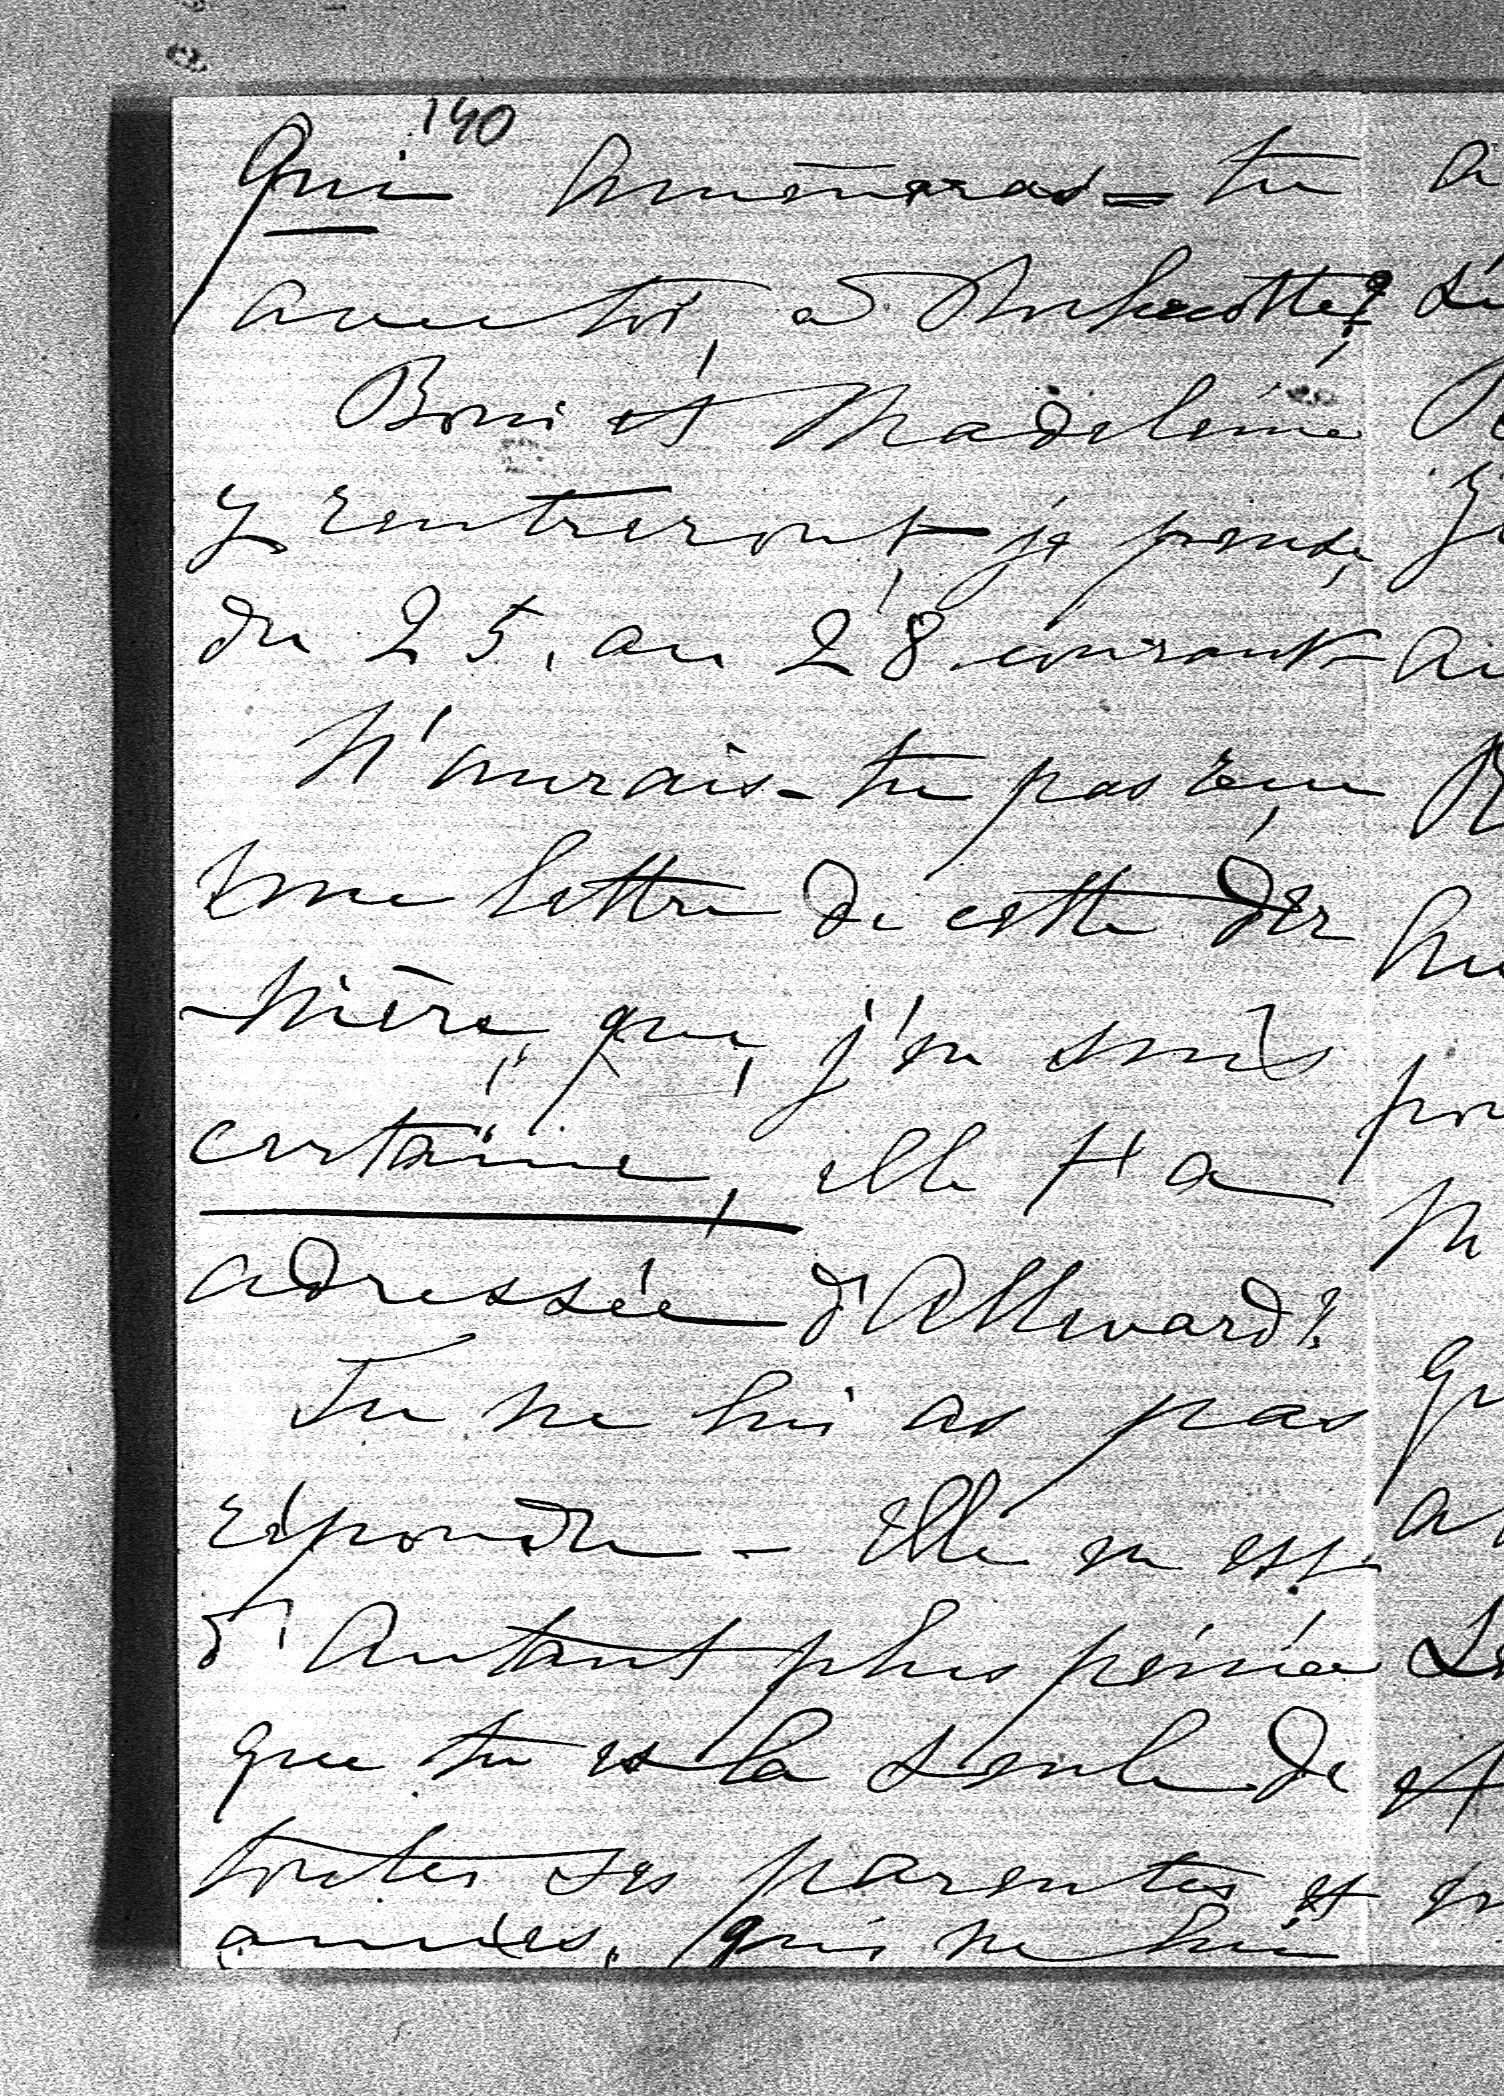 140
Qui amèneras-tu
avec toi, à
Boni et Madeleine
y rentreront je pense,
du 25, au 28 courant
N'aurais-tu pas reçu
une lettre de cette der
-nière, que, j'en suis
certaine, elle t'a
adressée d'Allevard?
Tu ne lui as pas
répondu - Elle en est
d'autant plus peinée
que tu es la seule de
toutes ses parentes et
amies, qui ne lui